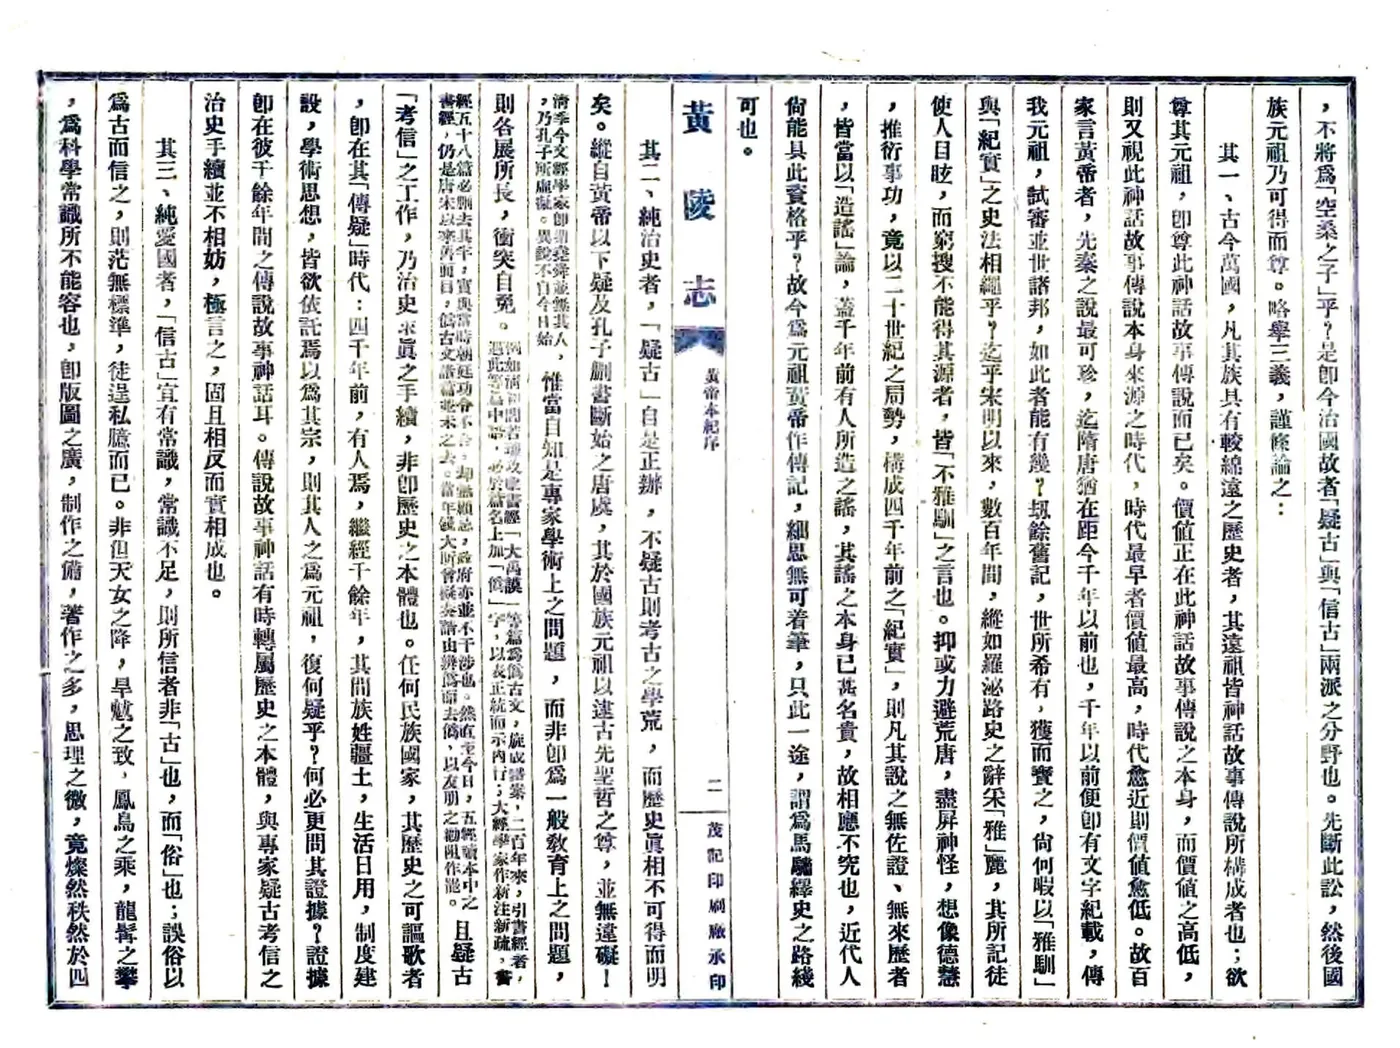 ，不將爲「空桑之子」乎？是卽今治國故者「疑古」與「信古」兩派之分野也。先斷此訟，然後國
族元祖乃可得而尊。略舉三義，謹條論之：
其一、古今萬國，凡其族具有較綿遠之歷史者，其遠祖皆神話故事傳說所構成者也；欲
尊其元祖，卽尊此神話故事傳說而已矣。價値正在此神話故事傳說之本身，而價値之高低，
則又視此神話故事傳說本身來源之時代，時代最早者價値最高，時代愈近則價値愈低。故百
家言黃帝者，先秦之說最可珍，迄隋唐猶在距今千年以前也，千年以前便卽有文字紀載，傳
我元祖，試審並世諸邦，如此者能有幾？刼餘舊記，世所希有，獲而寶之，尙何暇以「雅馴」
與「紀實」之史法相繩乎？迄乎宋明以來，數百年間，縱如羅泌路史之辭采「雅」麗，其所記徒
使人目眩，而窮搜不能得其源者，皆「不雅馴」之言也。抑或力避荒唐，盡屏神怪，想像德慧
，推衍事功，竟以二十世紀之局勢，構成四千年前之「紀實」，則凡其說之無佐證、無來歷者
，皆當以「造謠」論，蓋千年前有人所造之謠，其謠之本身已甚名貴，故相應不究也，近代人
尙能具此資格乎？故今爲元祖黃帝作傳記，細思無可着筆，只此一途，謂爲馬驌繹史之路綫
可也。
黃陵志
黃帝本紀序
二
茂記印刷廠承印
其二、純治史者，「疑古」自是正辦，不疑古則考古之學荒，而歷史眞相不可得而明
矣。縱自黃帝以下疑及孔子刪書斷始之唐虞，其於國族元祖以逮古先聖哲之尊，並無違礙！
淸季今文經學家卽謂堯舜並無其人
，乃孔子所虛擬。異說不自今日始，惟當自知是專家學術上之問題，而非卽爲一般敎育上之問題，
則各展所長，衝突自免。例如淸初閻若璩攻書經「大禹謨」等篇爲僞古文，旋成鐵案，二百年來，引書經者，
遇此等篇中語，必於篇名上加「僞」字，以表正統而示內行；大經學家作新注新疏，書
經五十八篇必刪去其半，實與當時朝廷功令不合，却無顧忌，政府亦並不干涉也。然直至今日，五經讀本中之
書經，仍是唐宋以來舊面目，僞古文諸篇並未之去。當年錢大昕曾擬奏請由辨僞而去僞，以友朋之勸阻作罷。且疑古
「考信」之工作，乃治史求眞之手續，非卽歷史之本體也。任何民族國家，其歷史之可謳歌者
，卽在其「傳疑」時代：四千年前，有人焉，繼經千餘年，其間族姓疆土，生活日用，制度建
設，學術思想，皆欲依託焉以爲其宗，則其人之爲元祖，復何疑乎？何必更問其證據？證據
卽在彼千餘年間之傳說故事神話耳。傳說故事神話有時轉屬歷史之本體，與專家疑古考信之
治史手續並不相妨，極言之，固且相反而實相成也。
其三、純愛國者，「信古」宜有常識，常識不足，則所信者非「古」也，而「俗」也；誤俗以
爲古而信之，則茫無標準，徒逞私臆而已。非但天女之降，旱魃之致，鳳鳥之乘，龍髯之攀
，爲科學常識所不能容也，卽版圖之廣，制作之備，著作之多，思理之微，竟燦然秩然於四